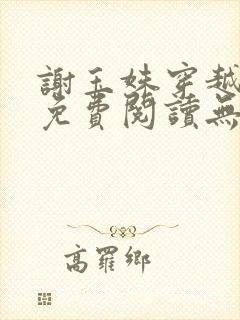 謝玉姝穿越
免費閱讀無
高羅鄉